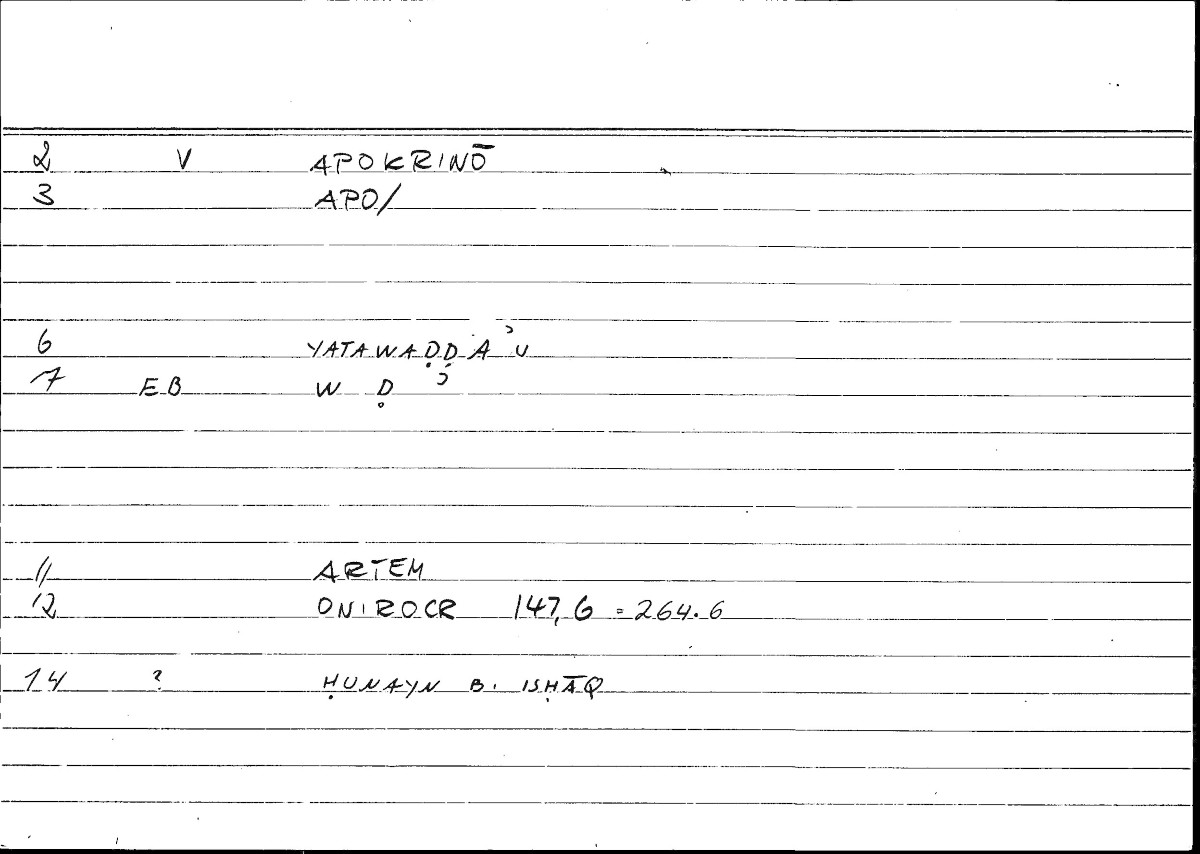 2 V APOKRINŌ
3 APO/
6 YATAWAḌḌAʾU
7 EB W Ḍ ʾ
11 ARTEM
12 ONIROCR 147,6 = 264.6
14 ? ḤUNAYN B. ISḤĀQ